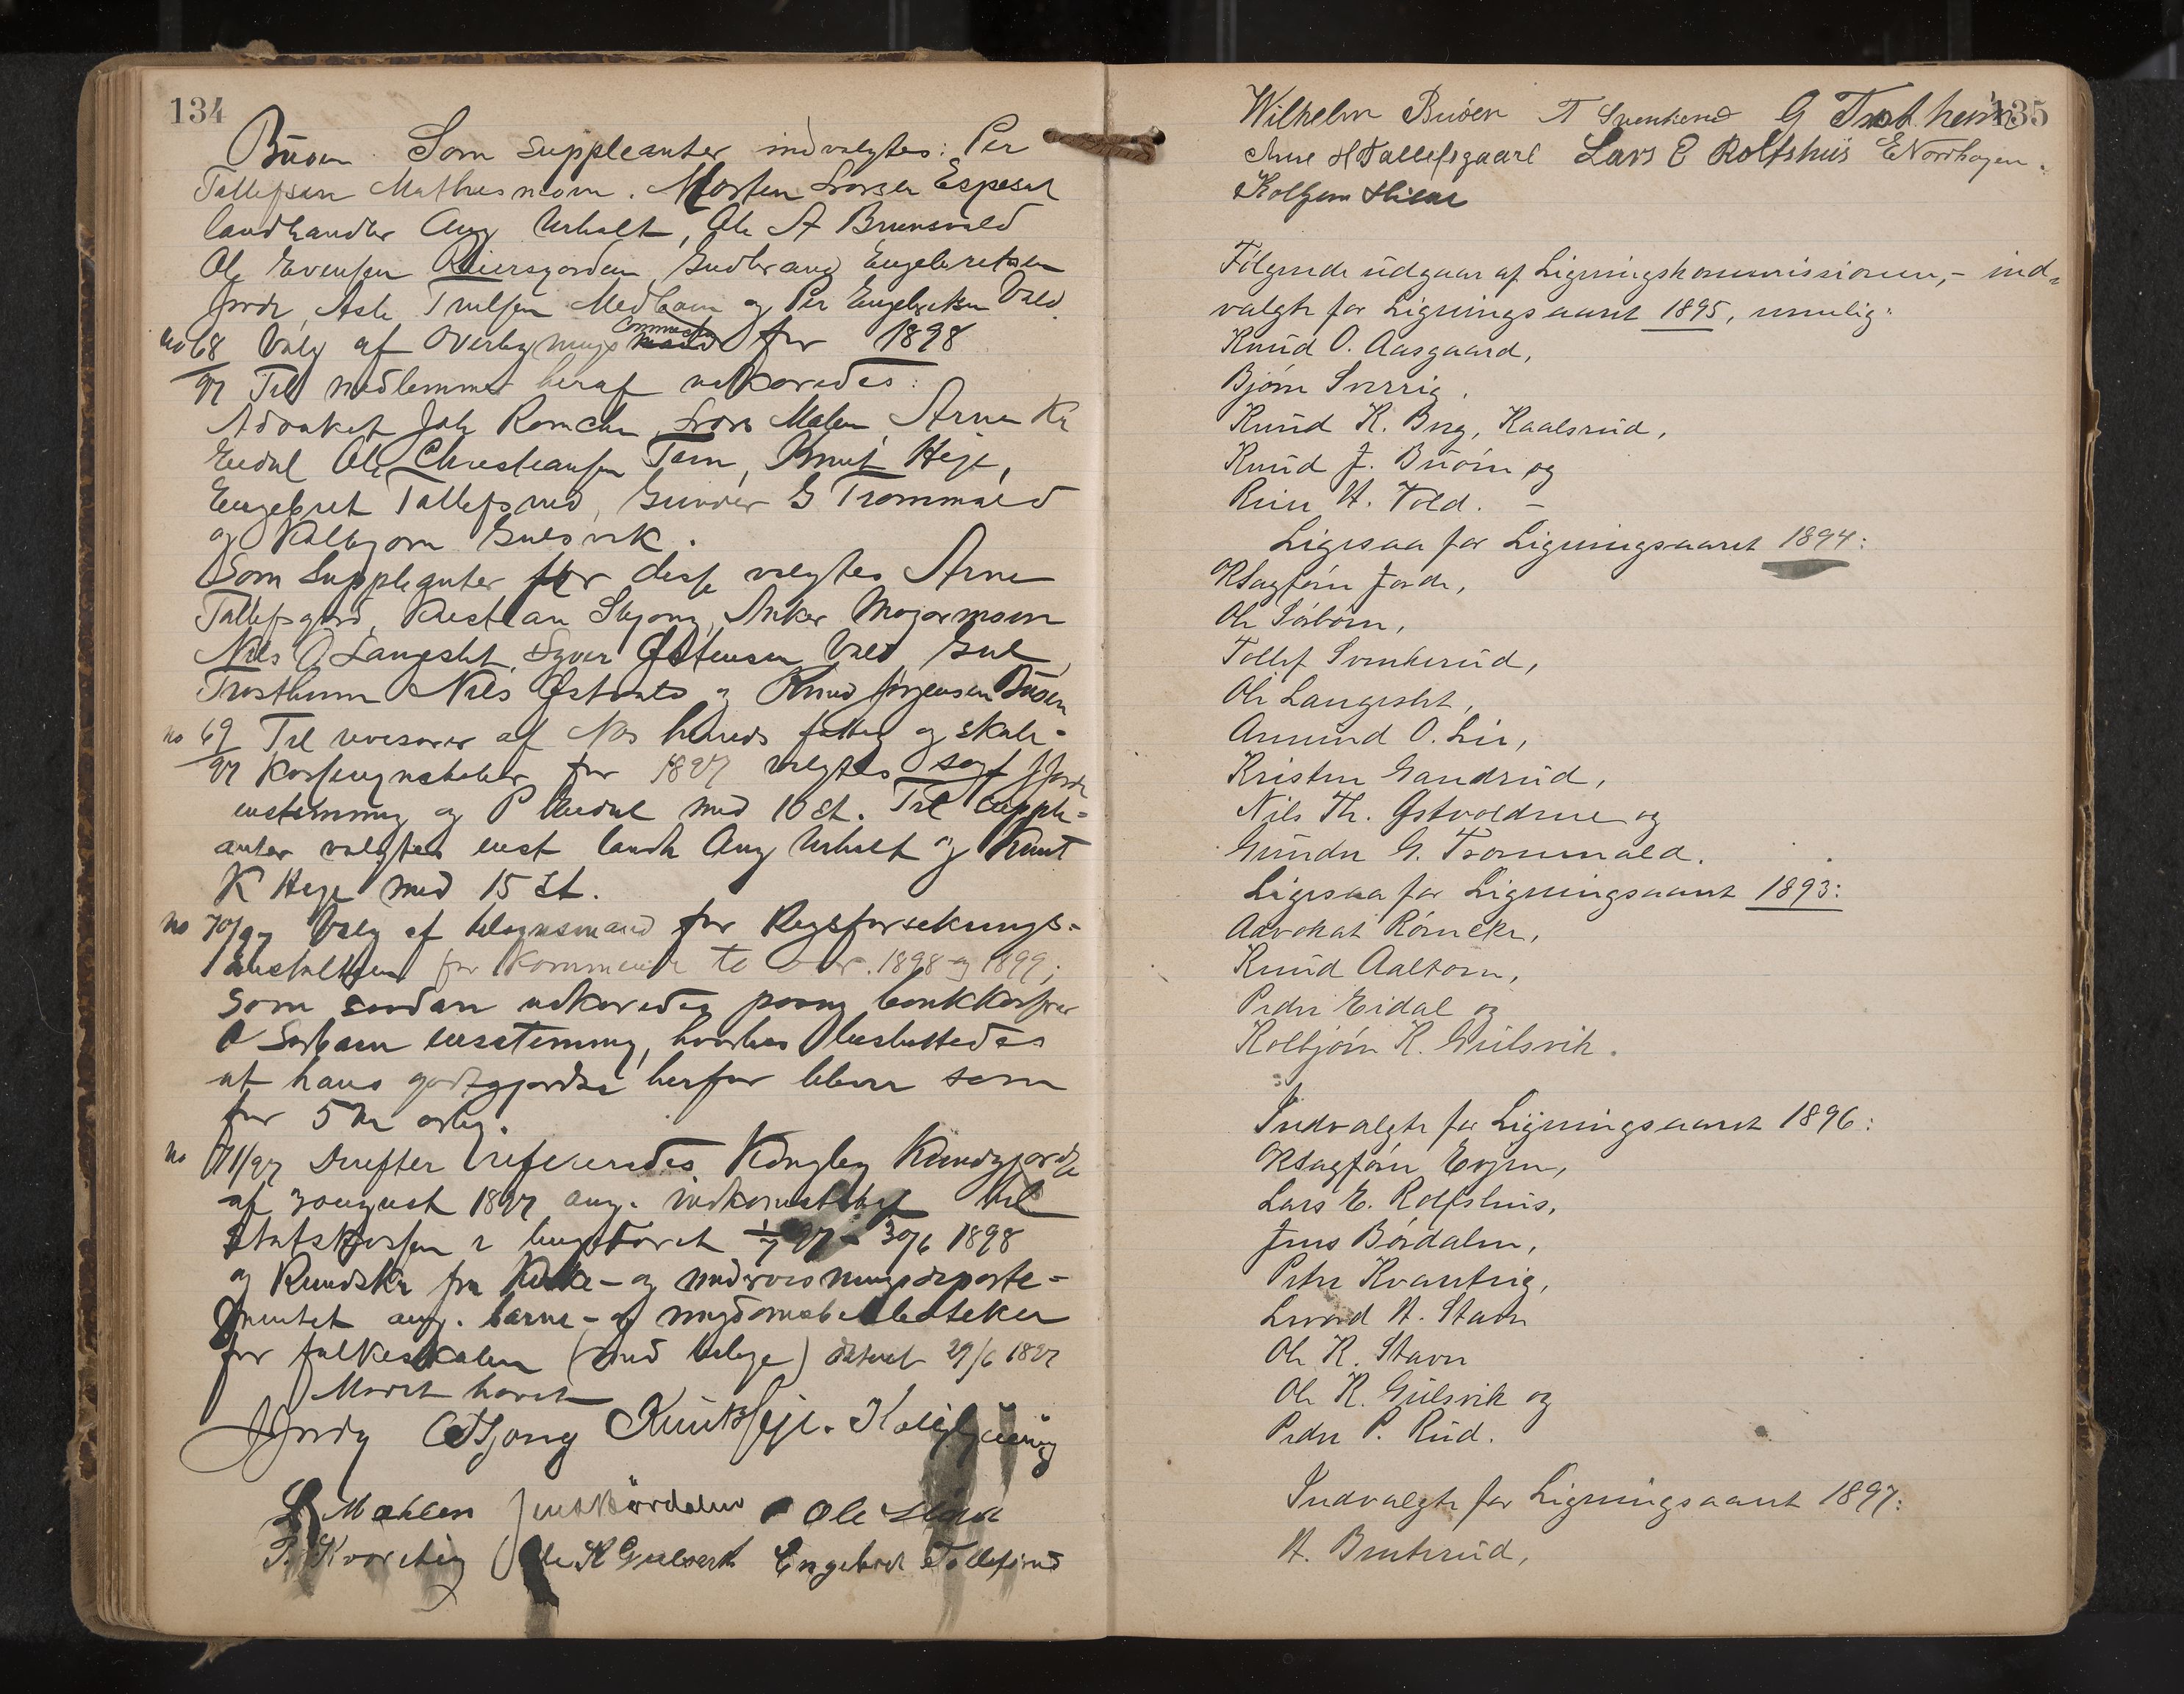 134
Buøen Som suppleanter indvalgtes: Per
Tollefsen Mathiesmoen. Morten Larsen Espeset
landhandler Aug Urholt, Ole A Brunsvold
Ole Evensen Reiersgorden, Gudbrand Engebretsen
Jorde, Asle Trulsen Medhaem og Per Engebretsen Vold
no 68 Valg af Overligningscommission for 1898
97 Til medlemmer heraf udkoredes:
Advokat Joh Romcke Lars Malen, Arne Kr
Eidal Ole Christiansen Tern, Knut Heje,
Engebret Tollefsrud, Gunder G Trommald
og Kolbjorn Gulsvik.
Som Suppleanter for disse valgtes Arne
Tollefsgord, Kristian Skjong, Anker Mojormoen
Nils O Langeslet, Syver Østensen Vold, Gul
Trostheim Nils Østvold og Knud Jørgensen Buøen
no 69 Til revisorer af Nes herreds fattig og skole-
97 kasseregnskaber for 1897 valgtes sagf Jorde
enstemmig og P Eidal med 10 st. Til supple-
anter valgtes enst landh Aug Urholt og Knut
K Heje med 15 st.
no 70/97 Valg af tilsynsmand for Rigsforsikrings-
anstalten for kommende to aar. 1898 og 1899;
som saadan udkoredes paany bankkasserer
O Sorbøen enstemmig, hvorhos besluttedes
at hans godtgjørelse herfor bliver som
før 5 kr arlig.
no 71/97 Derefter refereredes Kongelig Kundgjorelse
af 3 august 1897 ang. indkomstskat til
Statskassen i budgetaaret 1/7 97 - 30/6 1898
og Rundskr fra Kirke- og undervisningsdeparte-
mentet ang. barne- og ungdomsbibliotheker
for folkeskolen (med bilage) dateret 29/6 1897
Mødet hævet
Jorde OSkjong Knut Heje. Kolbjørn
L Mæhlen Jens Børdalen Ole Lia
P. Kvarstrig Ole K Gulsvik Engebret Tollefsrud
135
Wilhelm Buøen T Svenkerud G Trostheim
Arne H Tollefsgaard Lars E Rolfshus E Nordhagen.
Følgende udgaar af Ligningskommissionen, - ind-
valgte for Ligningsaaret 1895, nemlig:
Knud O. Aasgaard,
Bjørn Sverrig,
Knud K. Berg, Kaalsrud,
Knud J. Buøen og
Reier H. Vold. -
Ligesaa for Ligningsaaret 1894:
OSagfører Jorde,
Ole Sørbøen,
Tollef Svenkerud,
Ole Langeslet,
Amund O. Lie,
Kristen Gandrud,
Nils Th. Østvoldene og
Gunder G. Trommald.
Ligesaa for Ligningsaaret 1893:
Advokat Rømcke,
Knud Aaltom,
Peder Eidal og
Kolbjørn K. Gulsvik.
Indvalgte for Ligningsaaret 1896:
OSagfører Evjen,
Lars E. Rolfshus,
Jens Børdalen,
Peter Kvarstrig,
Levord H. Stavn
Ole K. Stavn
Ole K. Gulsvik og
Peder P. Rud.
Indvalgte for Ligningsaaret 1897:
H. Bruterud,